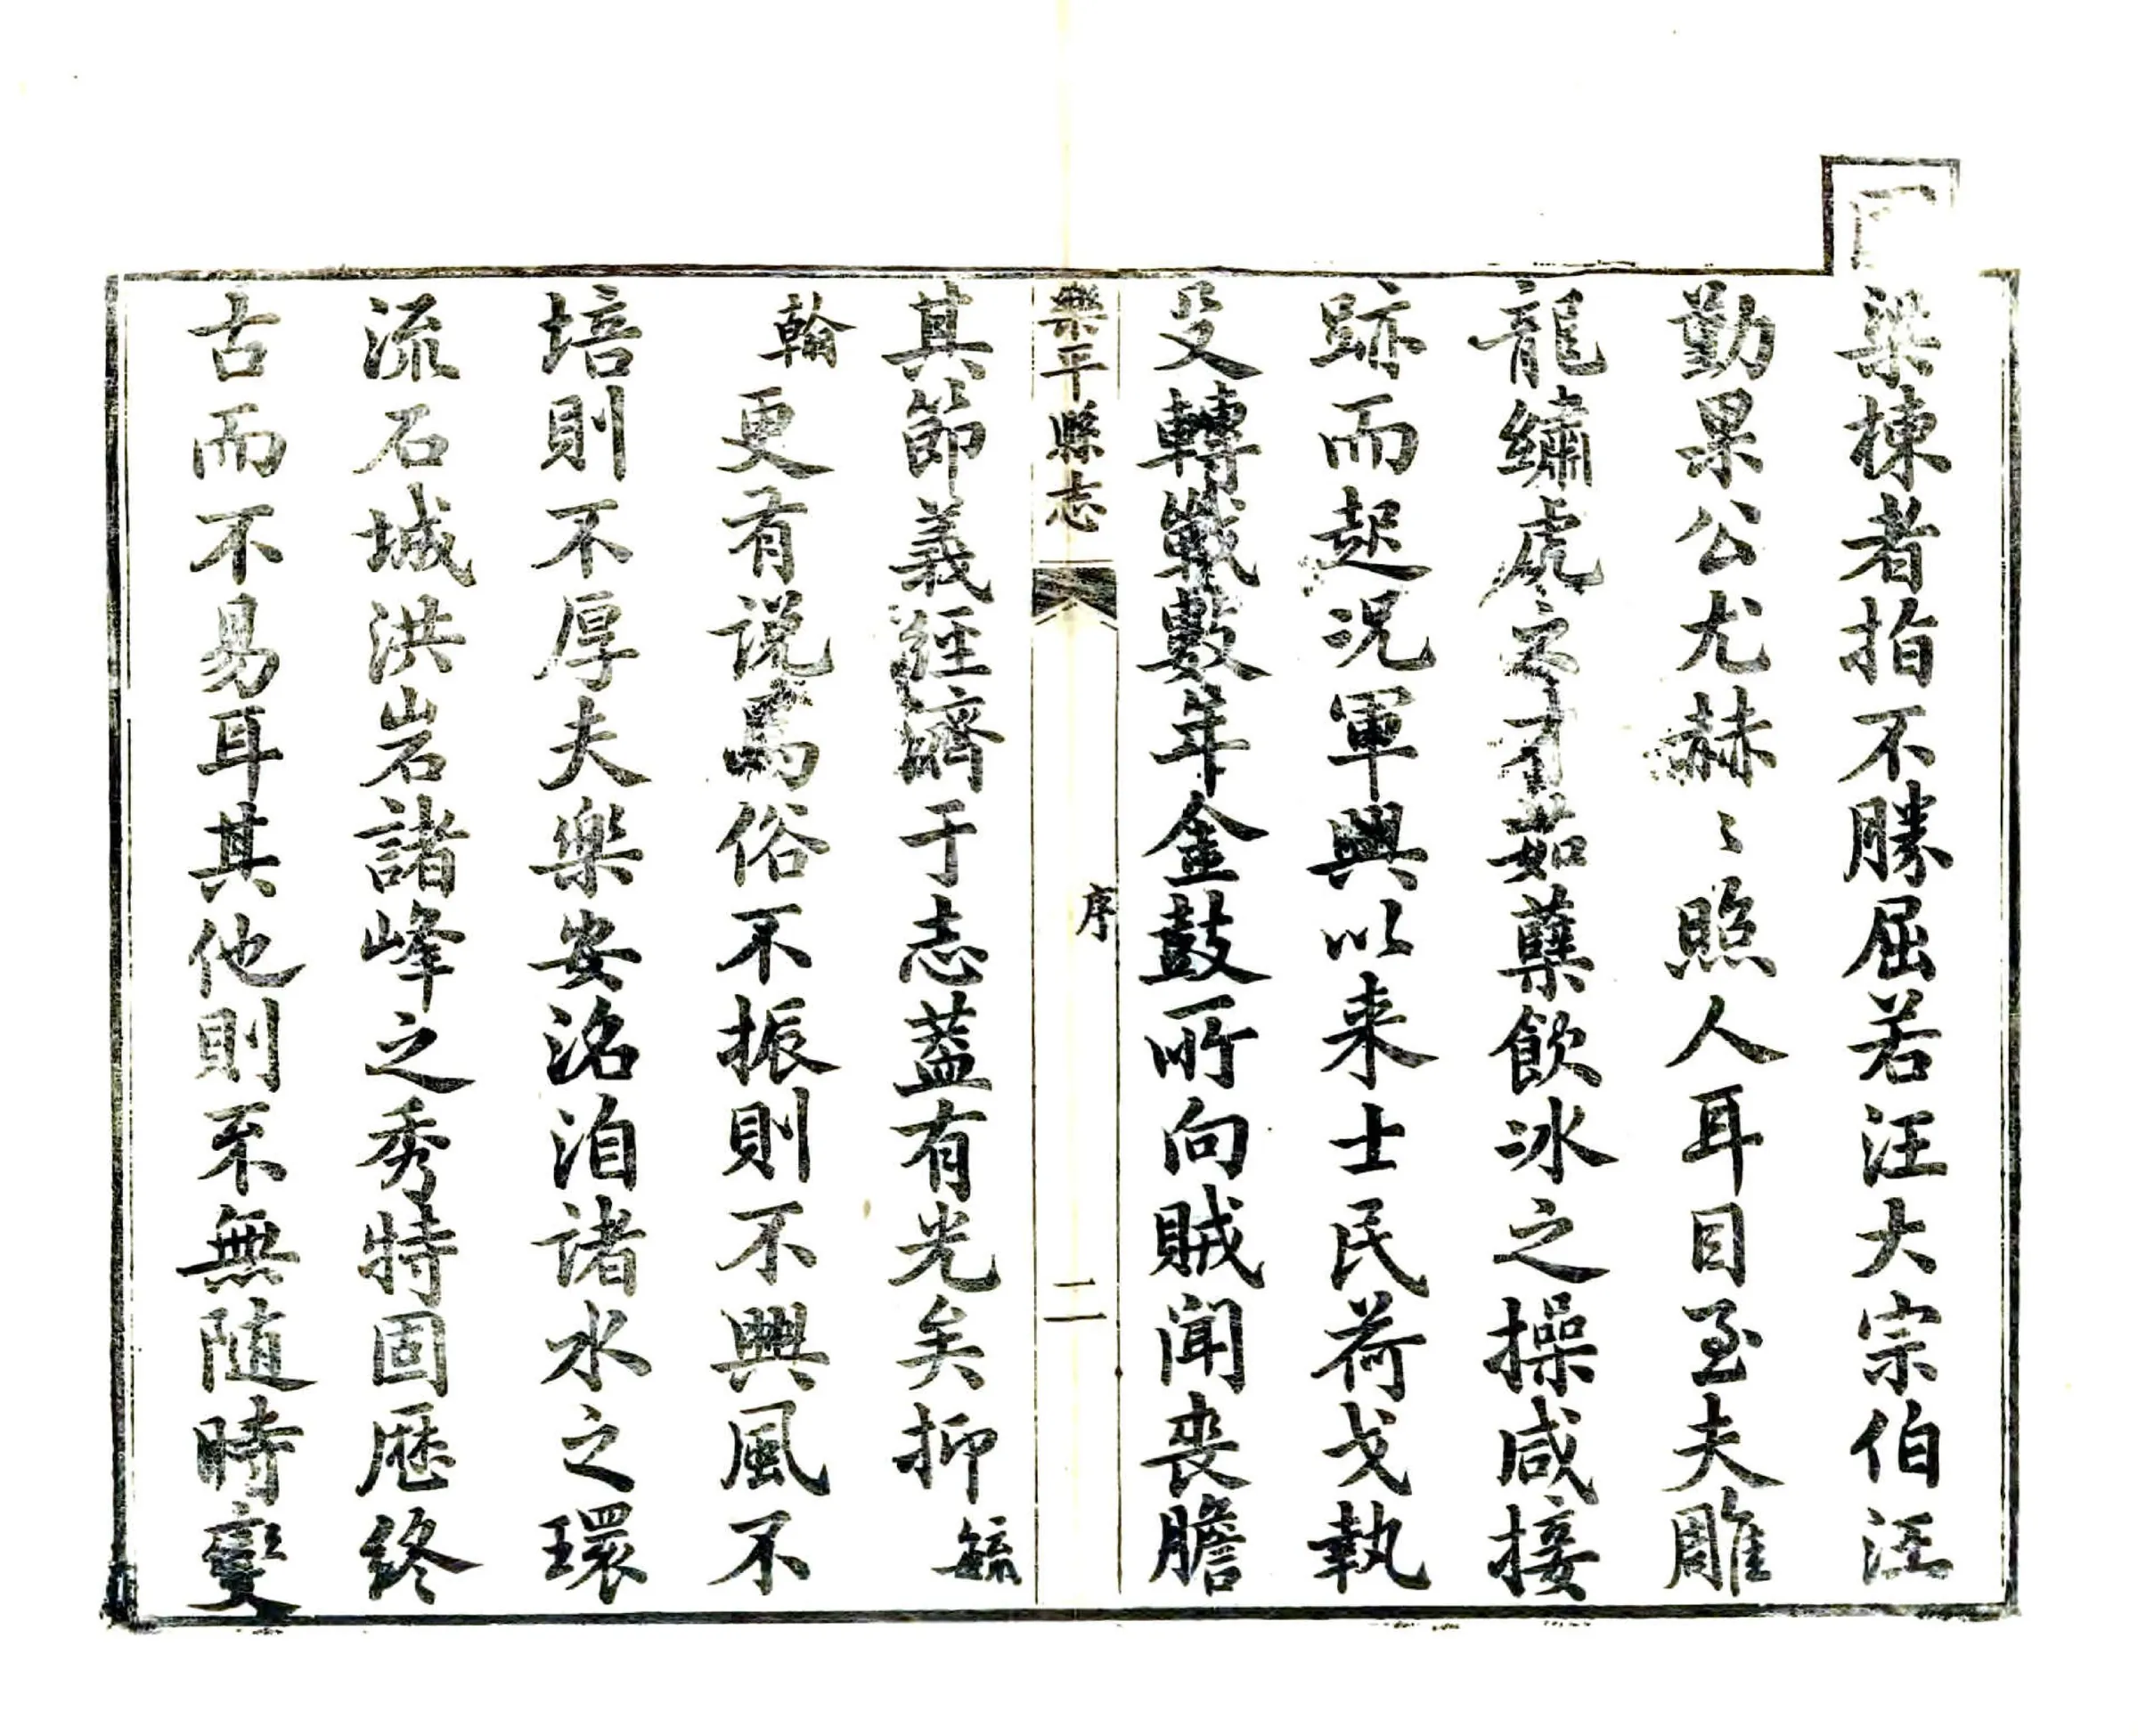 梁棟者指不勝屈若汪大宗伯汪
勤果公尤赫〻照人耳目至夫雕
龍繡虎之才茹蘖飲冰之操咸接
跡而起況軍興以来士民荷戈執
殳轉戰數年金鼓所向賊聞喪膽
樂平縣志 序 二
其節義經濟于志葢有光矣抑毓
翰更有説焉俗不振則不興風不
培則不厚夫樂安洺洎諸水之環
流石城洪岩諸峰之秀特固歴終
古而不易耳其他則不無随時變